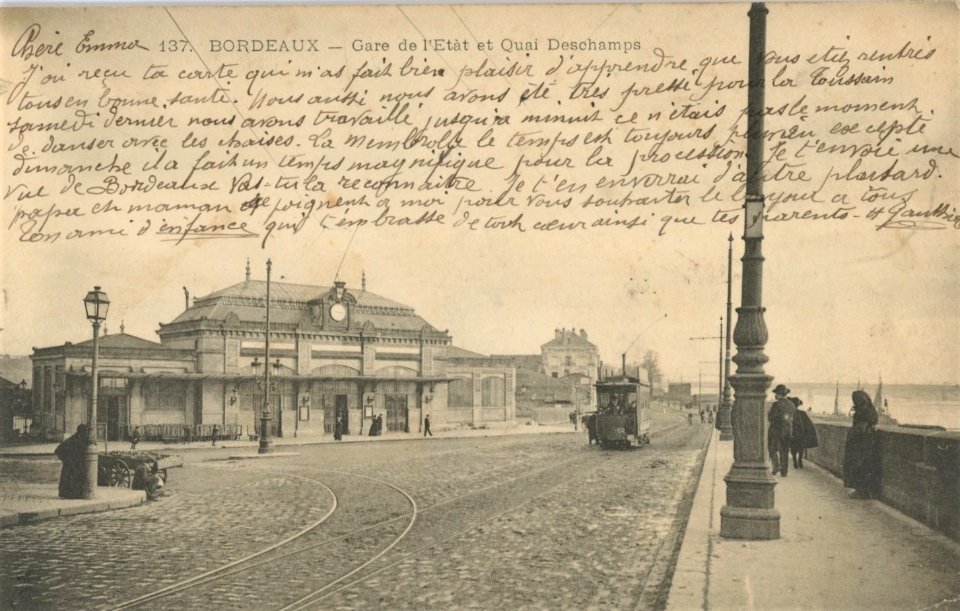 Chère Emma
137. BORDEAUX — Gare de l'Etàt et Quai Deschamps
J'ai reçu ta carte qui m'as fait bien plaisir d'apprendre que vous etiz rentrés
tous en bonne santé. Nous aussi nous avons été très pressé pour la Toussain
samedi dernier nous avons travaillé jusqu'a minuit ce n'étais pas le moment
de danser avec les chaises. La Membrolle le temps est toujours excepté
dimanche il a fait un temps magnifique pour la procession. Je t'envoie une
vue de Bordeaux Vas-tu la reconnaitre. Je t'en enverrai d'autre plus tard.
papa et maman se joignent a moi pour vous souhaiter le bonjour a tous
Ton ami d'enfance qui t'embrasse de tout cœur ainsi que tes parents - H Gauthier